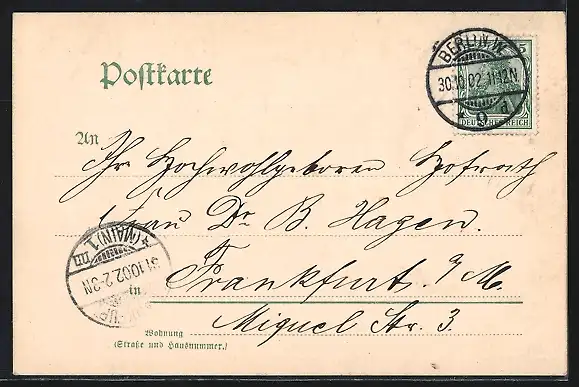 Postkarte
BERLIN.W.
30.10.02.11-12N
* 9 d
5
DEUTSCHES REICH
An
Ihr Hochwohlgeboren Hofrath
Frau Dr B. Hagen.
(MAIN) 1
31.10.02.2-3N
in Frankfurt a/M.
Wohnung Miquel Str. 3.
(Straße und Hausnummer.)